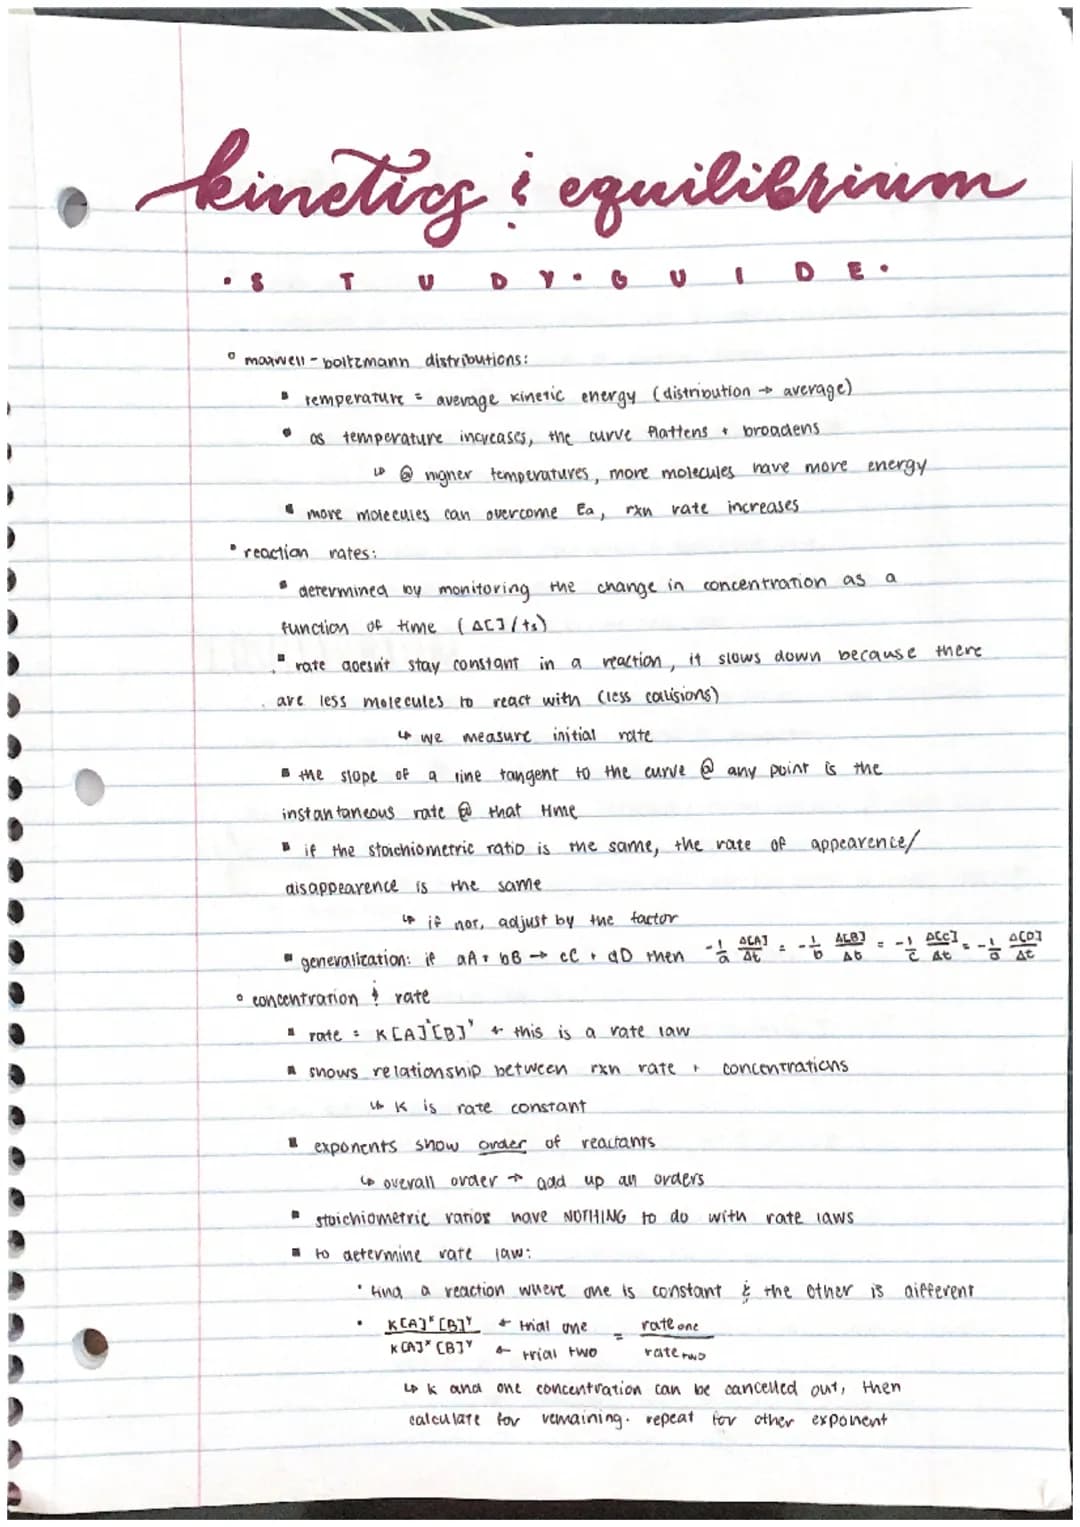 kinetics & equilibrium
• S T U D Y • G U I D E •
° maxwell-boltzmann distributions:
▪ temperature = average kinetic energy (distribution → average)
▪ as temperature increases, the curve flattens + broadens
↳ @ higher temperatures, more molecules have more energy
▪ more molecules can overcome Ea, rxn rate increases
° reaction rates:
▪ determined by monitoring the change in concentration as a
function of time (Δ[]/ts)
▪ rate doesn't stay constant in a reaction, it slows down because there
are less molecules to react with (less collisions)
↳ we measure initial rate
▪ the slope of a line tangent to the curve @ any point is the
instantaneous rate @ that time
▪ if the stoichiometric ratio is the same, the rate of appearence/
disappearence is the same
↳ if not, adjust by the factor
▪ generalization: if aA + bB → cC + dD then -1/a Δ[A]/Δt = -1/b Δ[B]/Δt = -1/c Δ[C]/Δt = -1/d Δ[D]/Δt
° concentration & rate
▪ rate = K[A]ˣ[B]ʸ ← this is a rate law
▪ shows relationship between rxn rate + concentrations
↳ K is rate constant
▪ exponents show order of reactants
↳ overall order → add up all orders
▪ stoichiometric ratios have NOTHING to do with rate laws
▪ to determine rate law:
• find a reaction where one is constant & the other is different
• K[A]ˣ[B]ʸ ← trial one = rate one
K[A]ˣ[B]ʸ ← trial two rate two
↳ k and one concentration can be cancelled out, then
calculate for remaining. repeat for other exponent